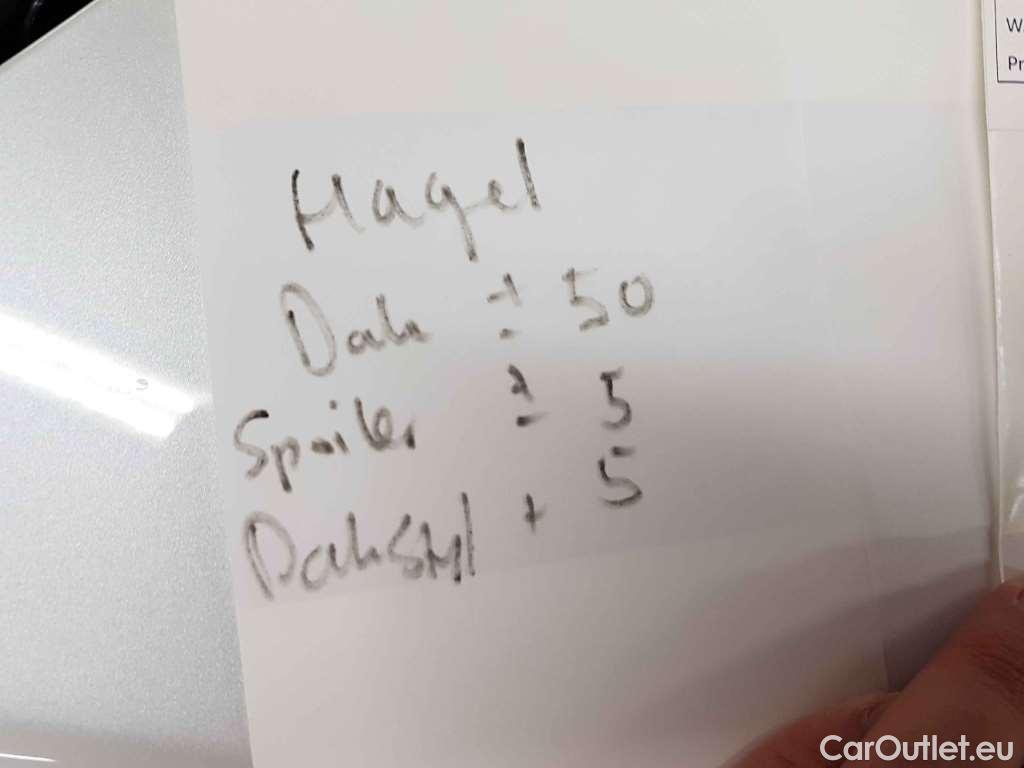 Hagel
Dak ± 50
Spoiler ± 5
Dakstijl + 5
W.
Pr
CarOutlet.eu